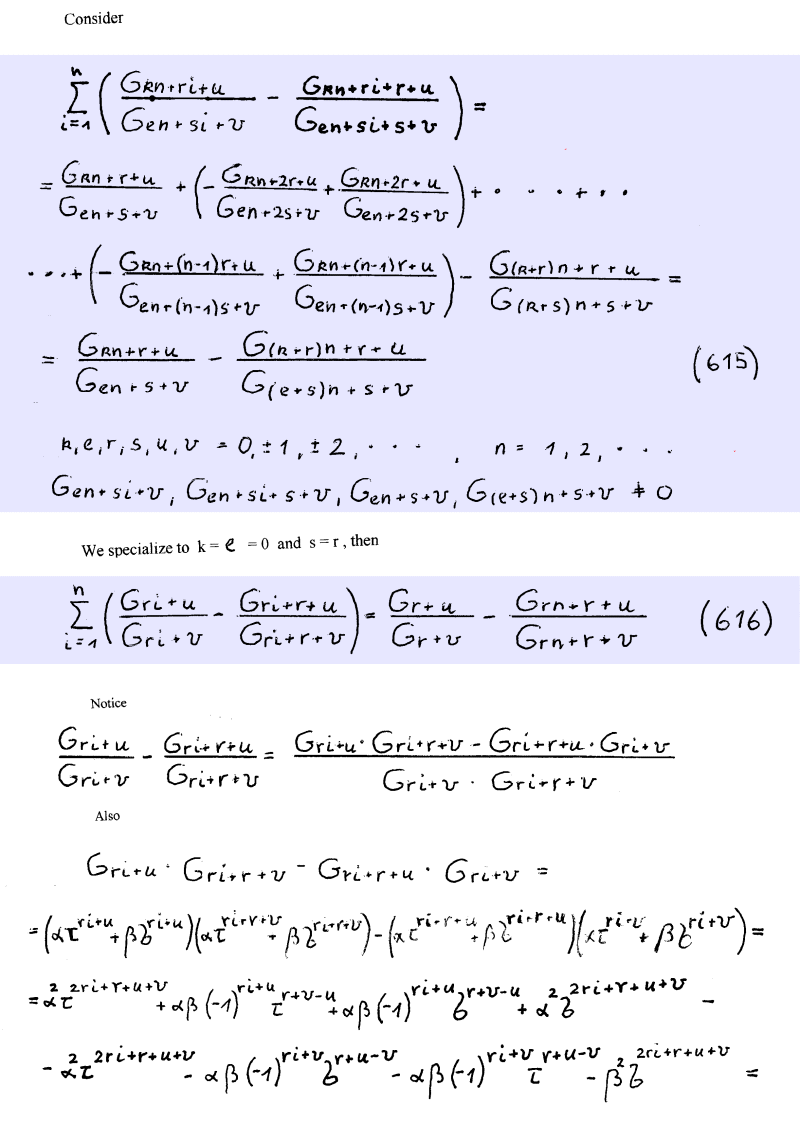 Consider
\sum_{i=1}^{n} \left( \frac{G_{kn+ri+u}}{G_{en+si+v}} - \frac{G_{kn+ri+r+u}}{G_{en+si+s+v}} \right) =
= \frac{G_{kn+r+u}}{G_{en+s+v}} + \left( -\frac{G_{kn+2r+u}}{G_{en+2s+v}} + \frac{G_{kn+2r+u}}{G_{en+2s+v}} \right) + \cdots + \cdots
\cdots + \left( -\frac{G_{kn+(n-1)r+u}}{G_{en+(n-1)s+v}} + \frac{G_{kn+(n-1)r+u}}{G_{en+(n-1)s+v}} \right) - \frac{G_{(k+r)n+r+u}}{G_{(k+s)n+s+v}} =
= \frac{G_{kn+r+u}}{G_{en+s+v}} - \frac{G_{(k+r)n+r+u}}{G_{(e+s)n+s+v}} (615)
k, e, r, s, u, v = 0, ±1, ±2, · · · , n = 1, 2, · · ·
G_{en+si+v}, G_{en+si+s+v}, G_{en+s+v}, G_{(e+s)n+s+v} ≠ 0
We specialize to k = e = 0 and s = r , then
\sum_{i=1}^{n} \left( \frac{G_{ri+u}}{G_{ri+v}} - \frac{G_{ri+r+u}}{G_{ri+r+v}} \right) = \frac{G_{r+u}}{G_{r+v}} - \frac{G_{rn+r+u}}{G_{rn+r+v}} (616)
Notice
\frac{G_{ri+u}}{G_{ri+v}} - \frac{G_{ri+r+u}}{G_{ri+r+v}} = \frac{G_{ri+u} · G_{ri+r+v} - G_{ri+r+u} · G_{ri+v}}{G_{ri+v} · G_{ri+r+v}}
Also
G_{ri+u} · G_{ri+r+v} - G_{ri+r+u} · G_{ri+v} =
= (ατ^{ri+u} + βδ^{ri+u})(ατ^{ri+r+v} + βδ^{ri+r+v}) - (ατ^{ri+r+u} + βδ^{ri+r+u})(ατ^{ri+v} + βδ^{ri+v}) =
= α^2 τ^{2ri+r+u+v} + αβ(-1)^{ri+u} τ^{r+v-u} + αβ(-1)^{ri+u} δ^{r+v-u} + α^2 δ^{2ri+r+u+v} -
- α^2 τ^{2ri+r+u+v} - αβ(-1)^{ri+v} δ^{r+u-v} - αβ(-1)^{ri+v} τ^{r+u-v} - β^2 δ^{2ri+r+u+v} =